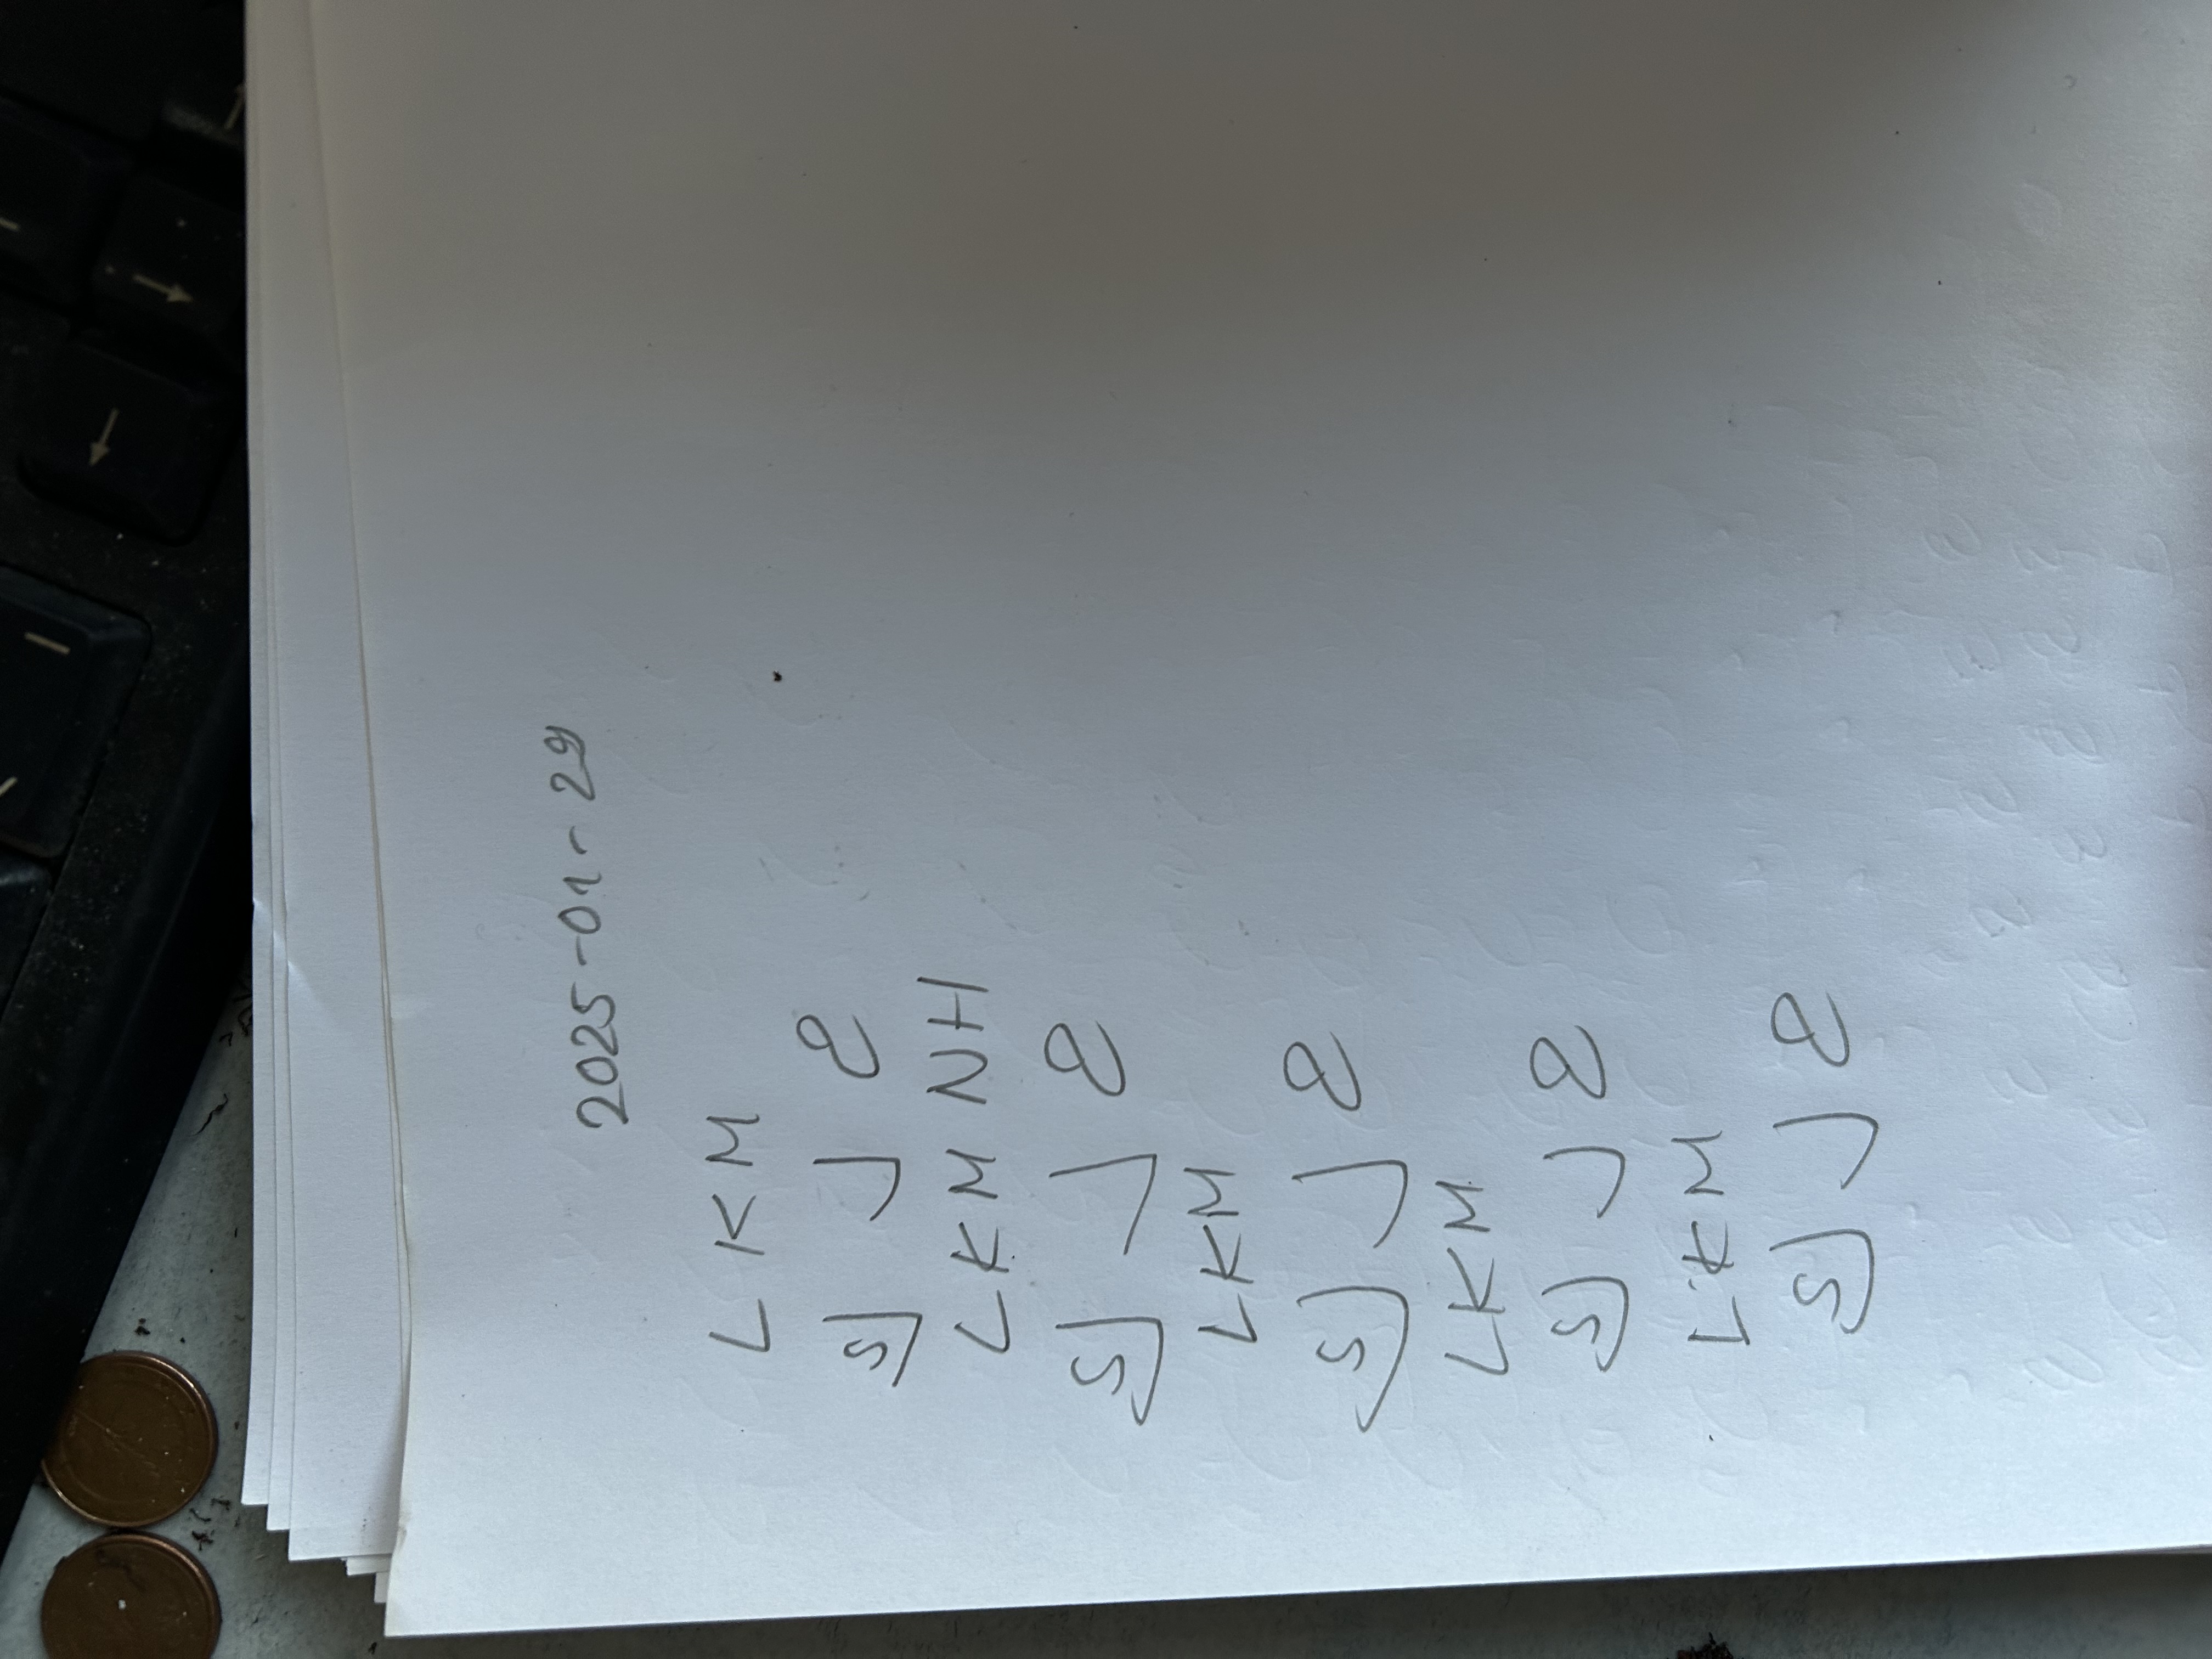 2025-01-29
L K M
SJ J
LKM NH
SJ J
LKM
SJ J
LKM
SJ J
LKM
SJ J